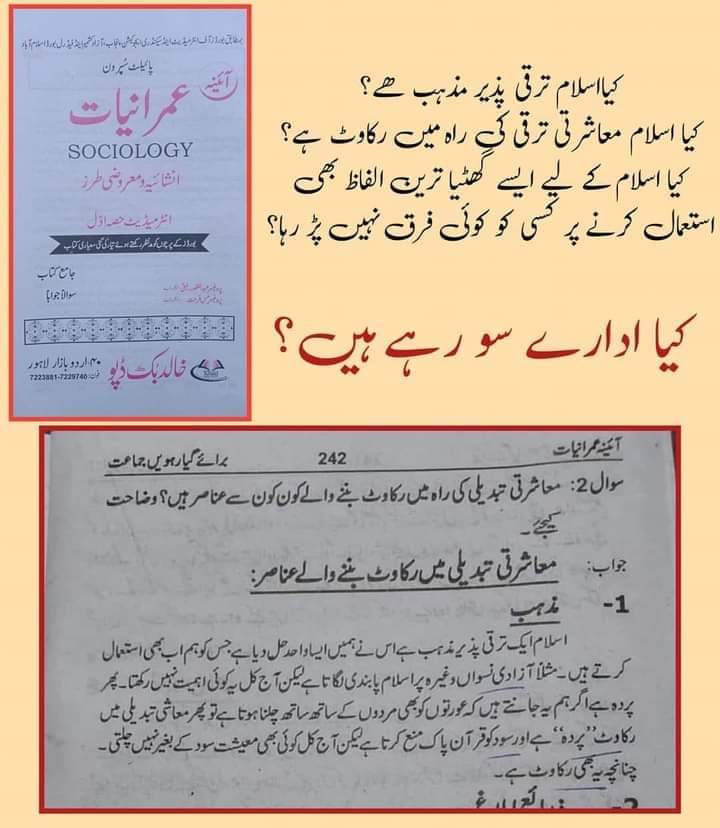 بمطابق بورڈز آف انٹرمیڈیٹ اینڈ سیکنڈری ایجوکیشن پنجاب، آزاد کشمیر اینڈ فیڈرل بورڈ اسلام آباد
پائیلٹ سُپر ون
آئینہ
عمرانیات
SOCIOLOGY
انشائیہ و معروضی طرز
انٹرمیڈیٹ حصہ اوّل
بورڈز کے پرچوں کو مدنظر رکھتے ہوئے تیار کی گئی معیاری کتاب
جامع کتاب
سوالاً جواباً
خالد بُک ڈپو
۴۰۔ اردو بازار لاہور
فون: 7223881-7229740
کیا اسلام ترقی پذیر مذہب ھے؟
کیا اسلام معاشرتی ترقی کی راہ میں رکاوٹ ہے؟
کیا اسلام کے لیے ایسے گھٹیا ترین الفاظ بھی
استعمال کرنے پر کسی کو کوئی فرق نہیں پڑ رہا؟
کیا ادارے سو رہے ہیں؟
آئینہ عمرانیات 242 برائے گیارہویں جماعت
سوال 2: معاشرتی تبدیلی کی راہ میں رکاوٹ بننے والے کون کون سے عناصر ہیں؟ وضاحت
کیجئے۔
جواب: معاشرتی تبدیلی میں رکاوٹ بننے والے عناصر:
1- مذہب
اسلام ایک ترقی پذیر مذہب ہے اس نے ہمیں ایسا واحد حل دیا ہے جس کو ہم اب بھی استعمال
کرتے ہیں۔ مثلاً آزادی نسواں وغیرہ پر اسلام پابندی لگاتا ہے لیکن آج کل یہ کوئی اہمیت نہیں رکھتا۔ پھر
پردہ ہے اگر ہم یہ جانتے ہیں کہ عورتوں کو بھی مردوں کے ساتھ ساتھ چلنا ہوتا ہے تو پھر معاشی تبدیلی میں
رکاوٹ "پردہ" ہے اور سود کو قرآن پاک منع کرتا ہے لیکن آج کل کوئی بھی معیشت سود کے بغیر نہیں چلتی۔
چنانچہ یہ بھی رکاوٹ ہے۔